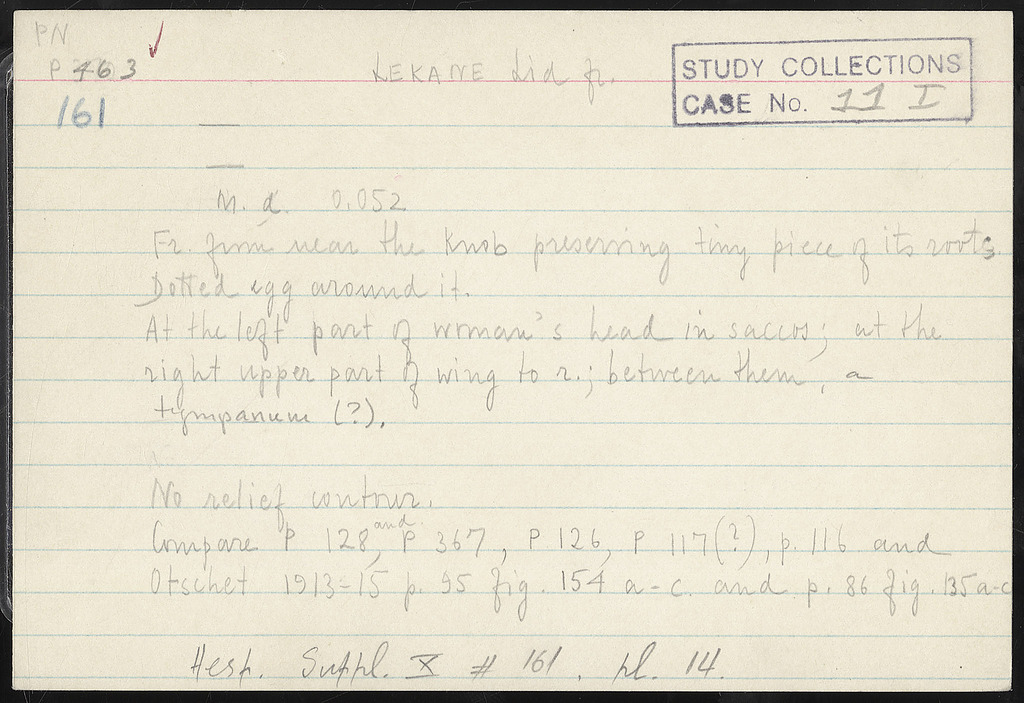 PN
P 463
161
LEKANE Lid fr.
STUDY COLLECTIONS
CASE No. 11 I
M. d. 0.052
Fr. from near the knob preserving tiny piece of its roots
Dotted egg around it.
At the left part of woman's head in saccos; at the
right upper part of wing to r.; between them, a
tympanum (?).
No relief contour.
Compare P 128, and P 367, P 126, P 117(?), p. 116 and
Otschet 1913-15 p. 95 fig. 154 a-c. and p. 86 fig. 135 a-c
Hesp. Suppl. X # 161, pl. 14.